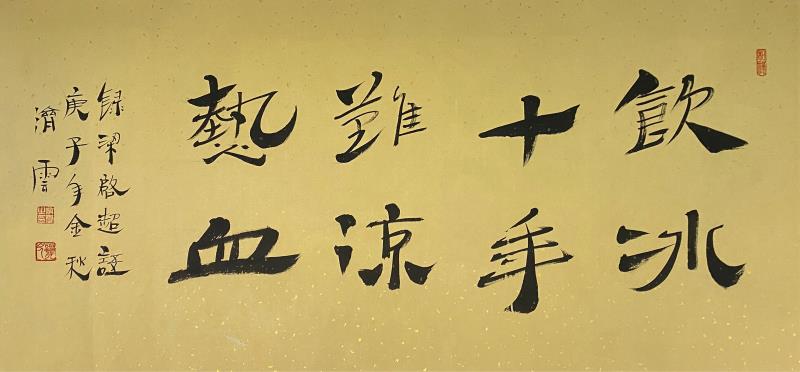 飲冰
十年
難涼
熱血
錄梁啟超語
庚子年金秋
濟雲